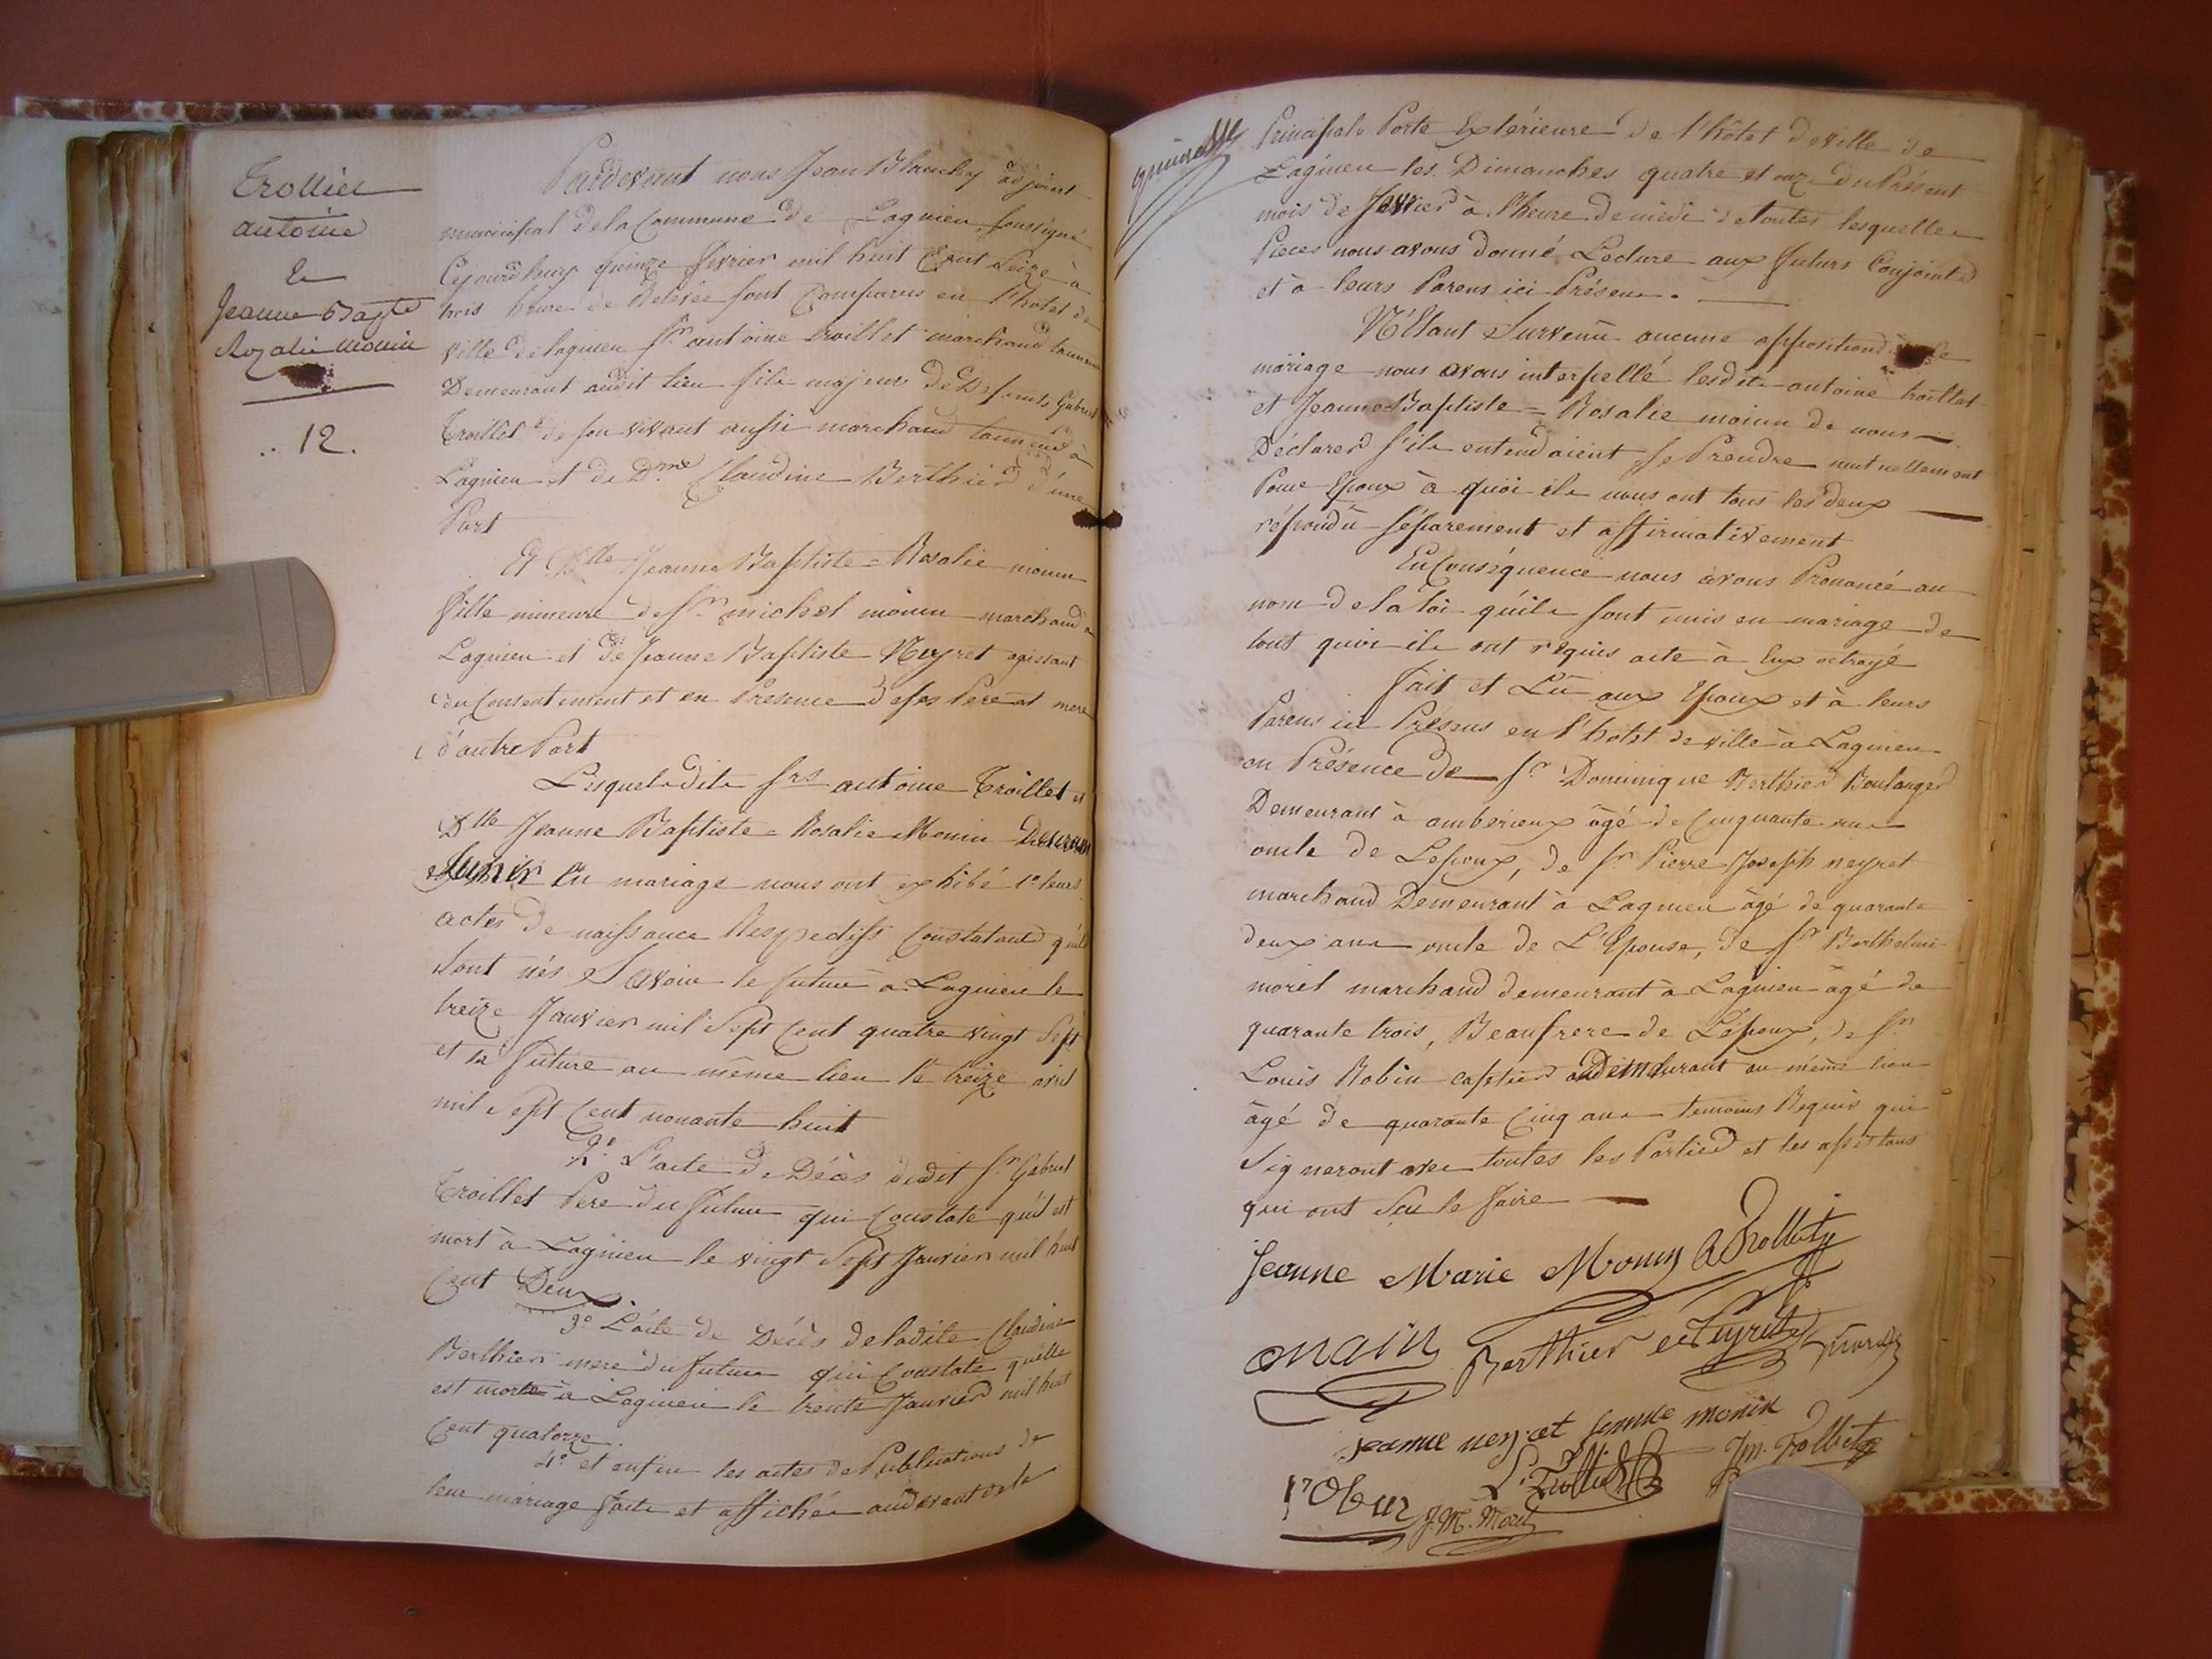 Trollier
antoine
&
Jeanne Bapte
Rozalie Monin
12.
Pardevant nous Jean Blanchy adjoint
municipal de la Commune de Lagnieu soussigné
Cejourdhuy quinze fevrier mil huit Cent Seize à
trois heure de Relevée sont Comparus en l'hotel de
ville de lagnieu Sr antoine troillet marchand tanneur
Demeurant audit lieu fils majeur de Defunts Gabriel
Troillet de son vivant aussi marchand tanneur à
Lagnieu et de Dme Claudine Berthier d'une
Part
Et Dlle Jeanne Baptiste = Rosalie monin
fille mineure de Sr michel monin marchand à
Lagnieu et de Jeanne Baptiste Neyret agissant
du Consentement et en Presence de ses Pere et mere
d'autre Part
Lesquels dits Srs antoine Troillet et
Dlle Jeanne Baptiste = Rosalie Monin
S'unir En mariage nous ont exhibé 1o leurs
actes de naissance Respectifs Constatant qu'ils
Sont nés Savoir le futur a Lagnieu le
treize Janvier mil Sept Cent quatre vingt Sept
et la future au même lieu le treize avril
mil Sept Cent nonante huit
2o L'acte de Décès dudit Sr Gabriel
Troillet Pere du futur qui Constate qu'il est
mort à Lagnieu le vingt Sept Janvier mil huit
Cent Deux.
3o L'acte de Décès de ladite Claudine
Berthier mere du futur qui Constate quelle
est morte à Lagnieu le trente Janvier mil huit
Cent quatorze.
4o et enfin les actes de Publications de
leur mariage faite et affichée audevant de la
Principale Porte Extérieure de l'hôtel de ville de
Lagnieu les Dimanches quatre et onze du Présent
mois de fevrier à l'heure de midi de toutes lesquelles
Pieces nous avons donné Lecture aux futurs Conjoints
et à leurs Parens ici Présens.
N'Etant Survenu aucune opposition
mariage nous avons interpellé lesdits antoine troillet
et Jeanne Baptiste = Rosalie monin de nous
Déclarer S'ils entendaient se Prendre mutuellement
Pour Epoux à quoi ils nous ont tous les deux
répondu séparement et affirmativement
En Conséquence nous avons Prononcé au
nom de la loi qu'ils sont unis en mariage de
tout quoi ils ont requis acte à Eux octroyé
Fait et Lû aux Epoux et à leurs
Parens ici Présens en l'hotel de ville à Lagnieu
en Présence de Sr Dominique Berthier Boulanger
Demeurant à amberieux âgé de Cinquante ans
oncle de Lepoux, de Sr Pierre Joseph neyret
marchand Demeurant à Lagnieu âgé de quarante
deux ans oncle de L'Epouse, de Sr Barthelmi
morel marchand demeurant à Lagnieu âgé de
quarante trois, Beaufrere de L'époux, de Sr
Louis Robin cafetier Demeurant au même lieu
âgé de quarante Cinq ans temoins Requis qui
Signeront avec toutes les Parties et les assistans
qui ont Scu le faire
Jeanne Marie Monin A Trollet
monin Berthier Neyret
jeanne neyret femme monin
Robin J.M. Morel Jm. Trolliet